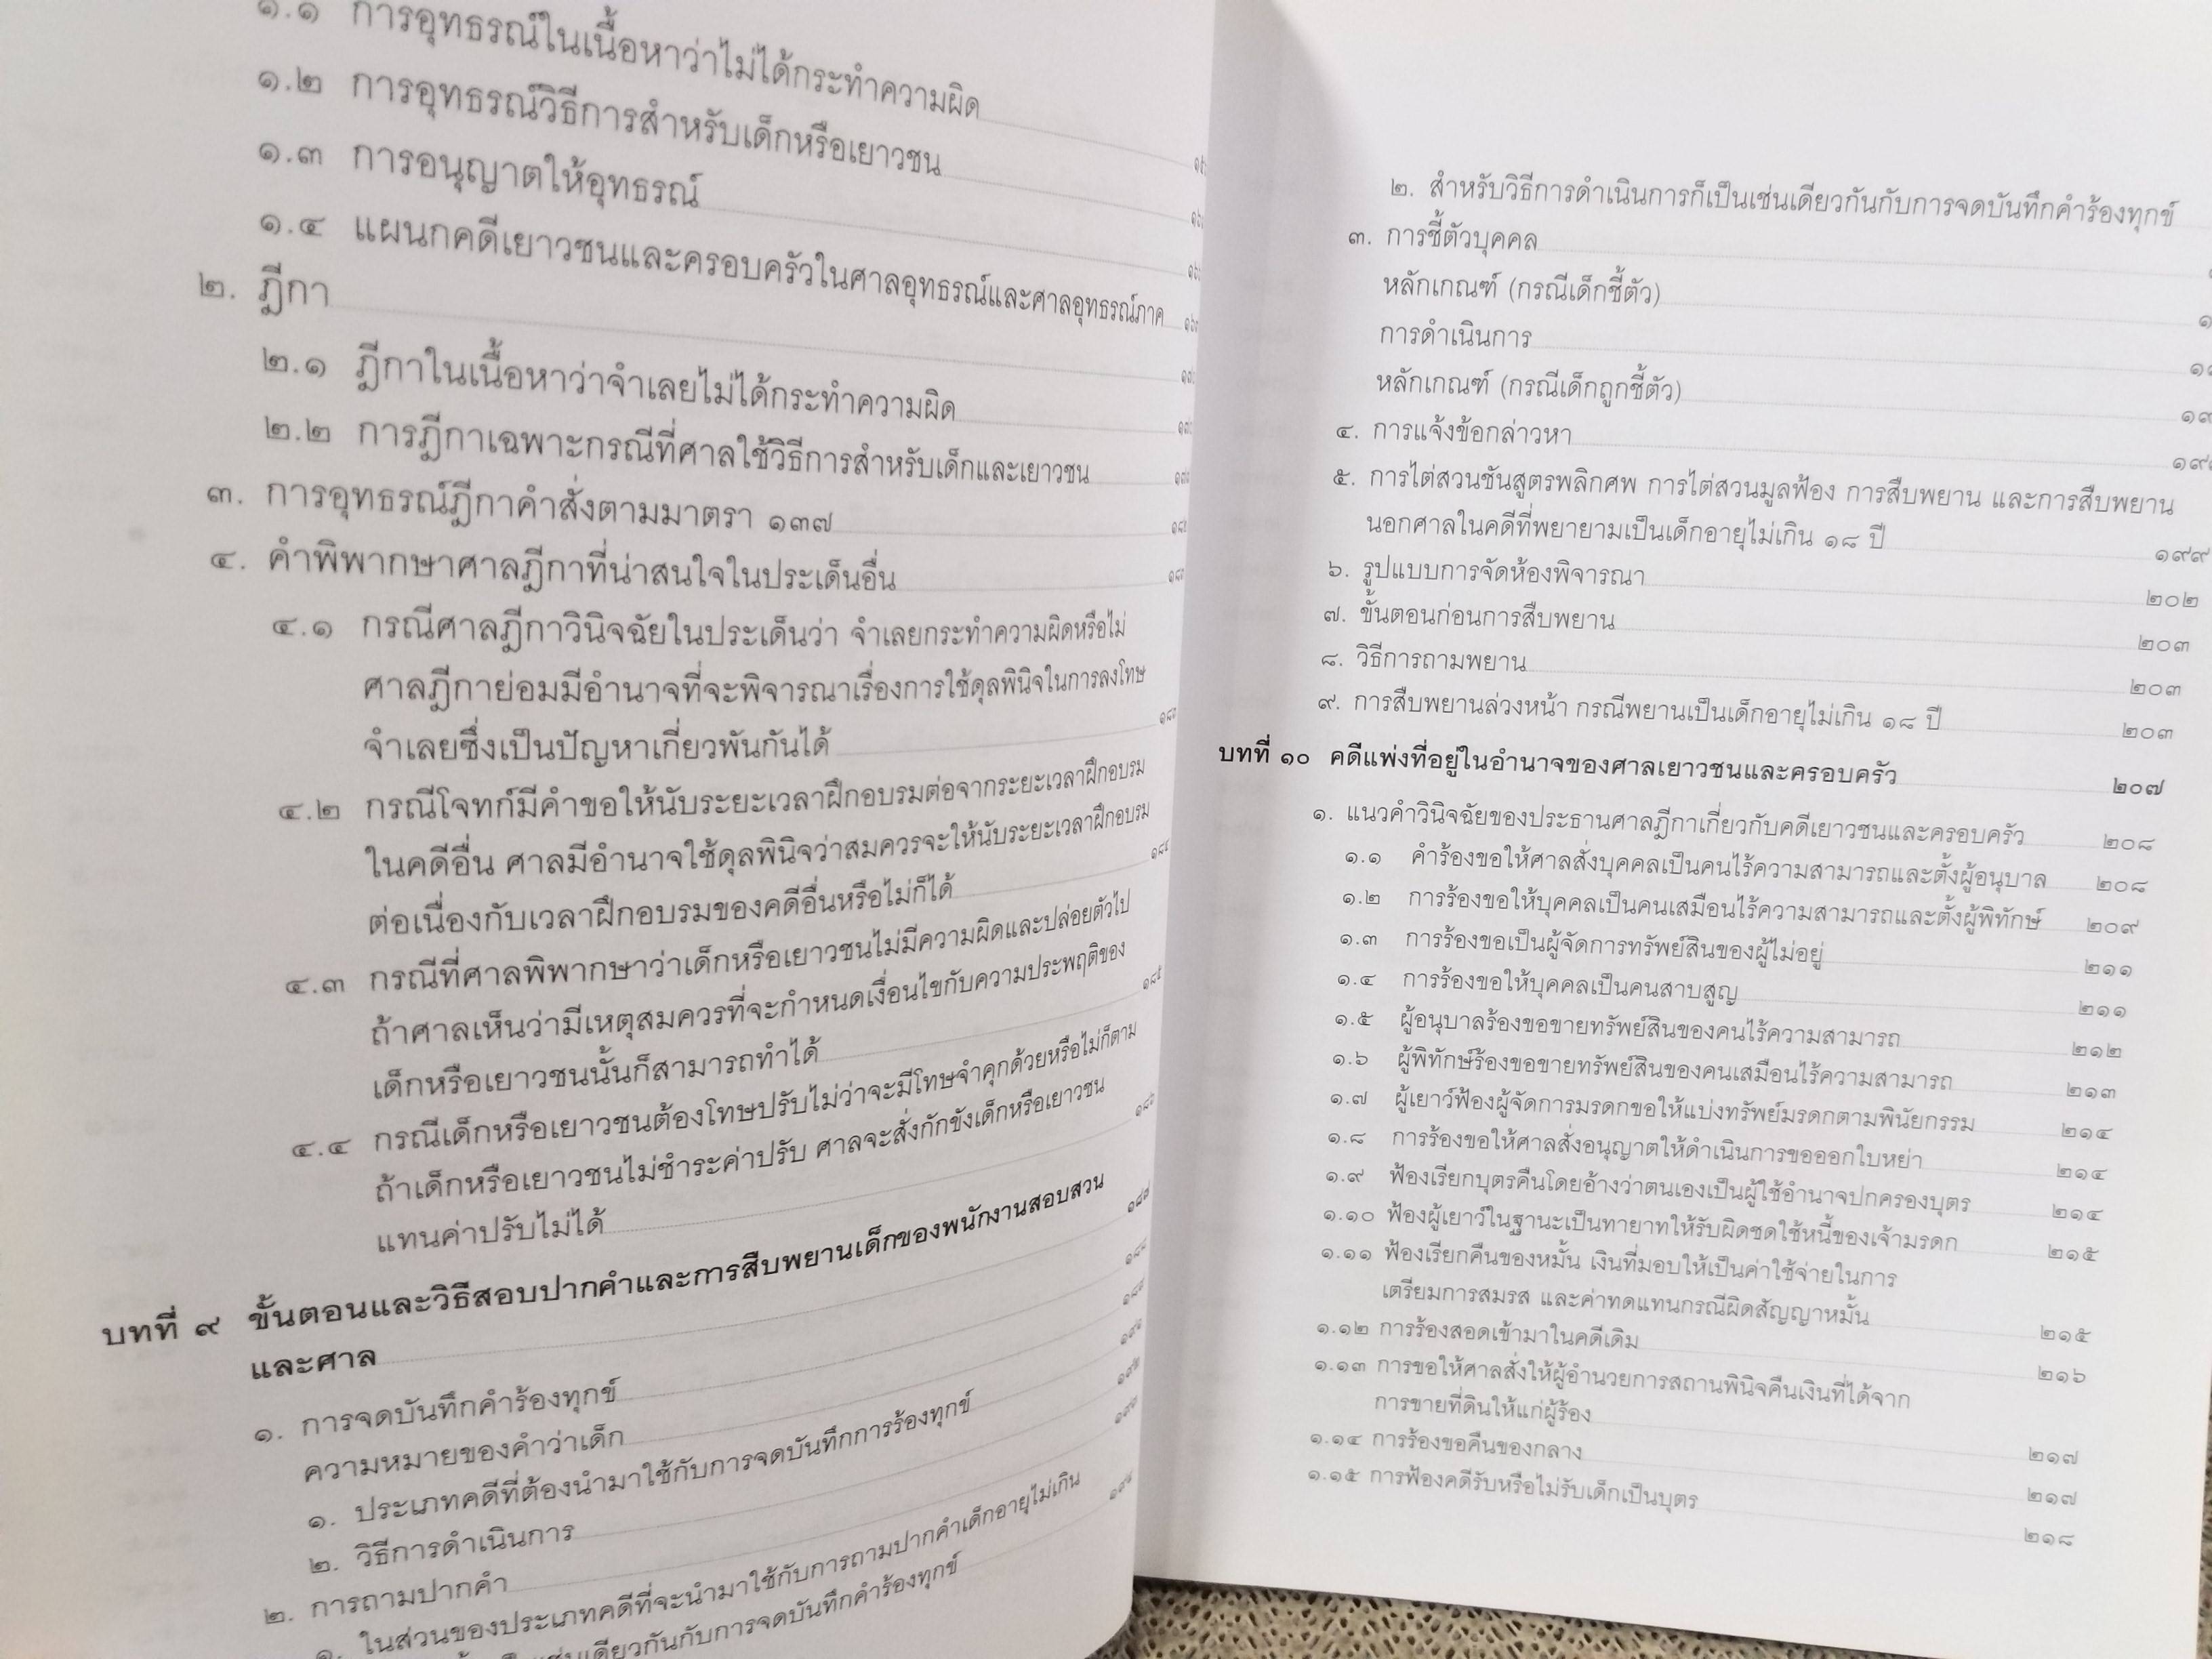 ๑.๑ การอุทธรณ์ในเนื้อหาว่าไม่ได้กระทำความผิด
๑.๒ การอุทธรณ์วิธีการสำหรับเด็กหรือเยาวชน
๑.๓ การอนุญาตให้อุทธรณ์
๑.๔ แผนกคดีเยาวชนและครอบครัวในศาลอุทธรณ์และศาลอุทธรณ์ภาค
๒. ฎีกา
๒.๑ ฎีกาในเนื้อหาว่าจำเลยไม่ได้กระทำความผิด
๒.๒ การฎีกาเฉพาะกรณีที่ศาลใช้วิธีการสำหรับเด็กและเยาวชน
๓. การอุทธรณ์ฎีกาคำสั่งตามมาตรา ๑๓๗
๔. คำพิพากษาศาลฎีกาที่น่าสนใจในประเด็นอื่น
๔.๑ กรณีศาลฎีกาวินิจฉัยในประเด็นว่า จำเลยกระทำความผิดหรือไม่
ศาลฎีกาย่อมมีอำนาจที่จะพิจารณาเรื่องการใช้ดุลพินิจในการลงโทษ
จำเลยซึ่งเป็นปัญหาเกี่ยวพันกันได้
๔.๒ กรณีโจทก์มีคำขอให้นับระยะเวลาฝึกอบรมต่อจากระยะเวลาฝึกอบรม
ในคดีอื่น ศาลมีอำนาจใช้ดุลพินิจว่าสมควรจะให้นับระยะเวลาฝึกอบรม
ต่อเนื่องกับเวลาฝึกอบรมของคดีอื่นหรือไม่ก็ได้
๔.๓ กรณีที่ศาลพิพากษาว่าเด็กหรือเยาวชนไม่มีความผิดและปล่อยตัวไป
ถ้าศาลเห็นว่ามีเหตุสมควรที่จะกำหนดเงื่อนไขกับความประพฤติของ
เด็กหรือเยาวชนนั้นก็สามารถทำได้ ๑๘๕
๔.๔ กรณีเด็กหรือเยาวชนต้องโทษปรับไม่ว่าจะมีโทษจำคุกด้วยหรือไม่ก็ตาม
ถ้าเด็กหรือเยาวชนไม่ชำระค่าปรับ ศาลจะสั่งกักขังเด็กหรือเยาวชน
แทนค่าปรับไม่ได้ ๑๘๖
บทที่ ๙ ขั้นตอนและวิธีสอบปากคำและการสืบพยานเด็กของพนักงานสอบสวน
และศาล ๑๘๗
๑. การจดบันทึกคำร้องทุกข์
ความหมายของคำว่าเด็ก
๑. ประเภทคดีที่ต้องนำมาใช้กับการจดบันทึกการร้องทุกข์
๒. วิธีการดำเนินการ
๒. การถามปากคำ
๑. ในส่วนของประเภทคดีที่จะนำมาใช้กับการถามปากคำเด็กอายุไม่เกิน
เช่นเดียวกันกับการจดบันทึกคำร้องทุกข์
๒. สำหรับวิธีการดำเนินการก็เป็นเช่นเดียวกันกับการจดบันทึกคำร้องทุกข์
๓. การชี้ตัวบุคคล
หลักเกณฑ์ (กรณีเด็กชี้ตัว)
การดำเนินการ
หลักเกณฑ์ (กรณีเด็กถูกชี้ตัว)
๔. การแจ้งข้อกล่าวหา
๕. การไต่สวนชันสูตรพลิกศพ การไต่สวนมูลฟ้อง การสืบพยาน และการสืบพยาน
นอกศาลในคดีที่พยายามเป็นเด็กอายุไม่เกิน ๑๘ ปี ๑๙๙
๖. รูปแบบการจัดห้องพิจารณา ๒๐๒
๗. ขั้นตอนก่อนการสืบพยาน ๒๐๓
๘. วิธีการถามพยาน ๒๐๓
๙. การสืบพยานล่วงหน้า กรณีพยานเป็นเด็กอายุไม่เกิน ๑๘ ปี ๒๐๓
บทที่ ๑๐ คดีแพ่งที่อยู่ในอำนาจของศาลเยาวชนและครอบครัว ๒๐๗
๑. แนวคำวินิจฉัยของประธานศาลฎีกาเกี่ยวกับคดีเยาวชนและครอบครัว ๒๐๘
๑.๑ คำร้องขอให้ศาลสั่งบุคคลเป็นคนไร้ความสามารถและตั้งผู้อนุบาล ๒๐๘
๑.๒ การร้องขอให้บุคคลเป็นคนเสมือนไร้ความสามารถและตั้งผู้พิทักษ์ ๒๐๙
๑.๓ การร้องขอเป็นผู้จัดการทรัพย์สินของผู้ไม่อยู่ ๒๑๑
๑.๔ การร้องขอให้บุคคลเป็นคนสาบสูญ ๒๑๑
๑.๕ ผู้อนุบาลร้องขอขายทรัพย์สินของคนไร้ความสามารถ ๒๑๒
๑.๖ ผู้พิทักษ์ร้องขอขายทรัพย์สินของคนเสมือนไร้ความสามารถ ๒๑๓
๑.๗ ผู้เยาว์ฟ้องผู้จัดการมรดกขอให้แบ่งทรัพย์มรดกตามพินัยกรรม ๒๑๔
๑.๘ การร้องขอให้ศาลสั่งอนุญาตให้ดำเนินการขอออกใบหย่า ๒๑๔
๑.๙ ฟ้องเรียกบุตรคืนโดยอ้างว่าตนเองเป็นผู้ใช้อำนาจปกครองบุตร ๒๑๔
๑.๑๐ ฟ้องผู้เยาว์ในฐานะเป็นทายาทให้รับผิดชดใช้หนี้ของเจ้ามรดก ๒๑๕
๑.๑๑ ฟ้องเรียกคืนของหมั้น เงินที่มอบให้เป็นค่าใช้จ่ายในการ
เตรียมการสมรส และค่าทดแทนกรณีผิดสัญญาหมั้น ๒๑๕
๑.๑๒ การร้องสอดเข้ามาในคดีเดิม ๒๑๖
๑.๑๓ การขอให้ศาลสั่งให้ผู้อำนวยการสถานพินิจคืนเงินที่ได้จาก
การขายที่ดินให้แก่ผู้ร้อง ๒๑๗
๑.๑๔ การร้องขอคืนของกลาง ๒๑๗
๑.๑๕ การฟ้องคดีรับหรือไม่รับเด็กเป็นบุตร ๒๑๘